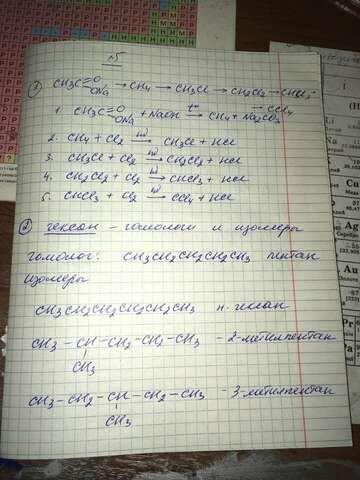 №5
① CH3C=O ONa → CH4 → CH3Cl → CH2Cl2 → CHCl3 → CCl4
1. CH3C=O ONa + NaOH t° → CH4 + Na2CO3
2. CH4 + Cl2 hν → CH3Cl + HCl
3. CH3Cl + Cl2 hν → CH2Cl2 + HCl
4. CH2Cl2 + Cl2 hν → CHCl3 + HCl
5. CHCl3 + Cl2 hν → CCl4 + HCl
② гексан – гомологи и изомеры
гомолог: CH3CH2CH2CH2CH3 пентан
изомеры
CH3CH2CH2CH2CH2CH3 н. гексан
CH3 – CH – CH2 – CH2 – CH3 – 2-метилпентан
CH3
CH3 – CH2 – CH – CH2 – CH3 – 3-метилпентан
CH3